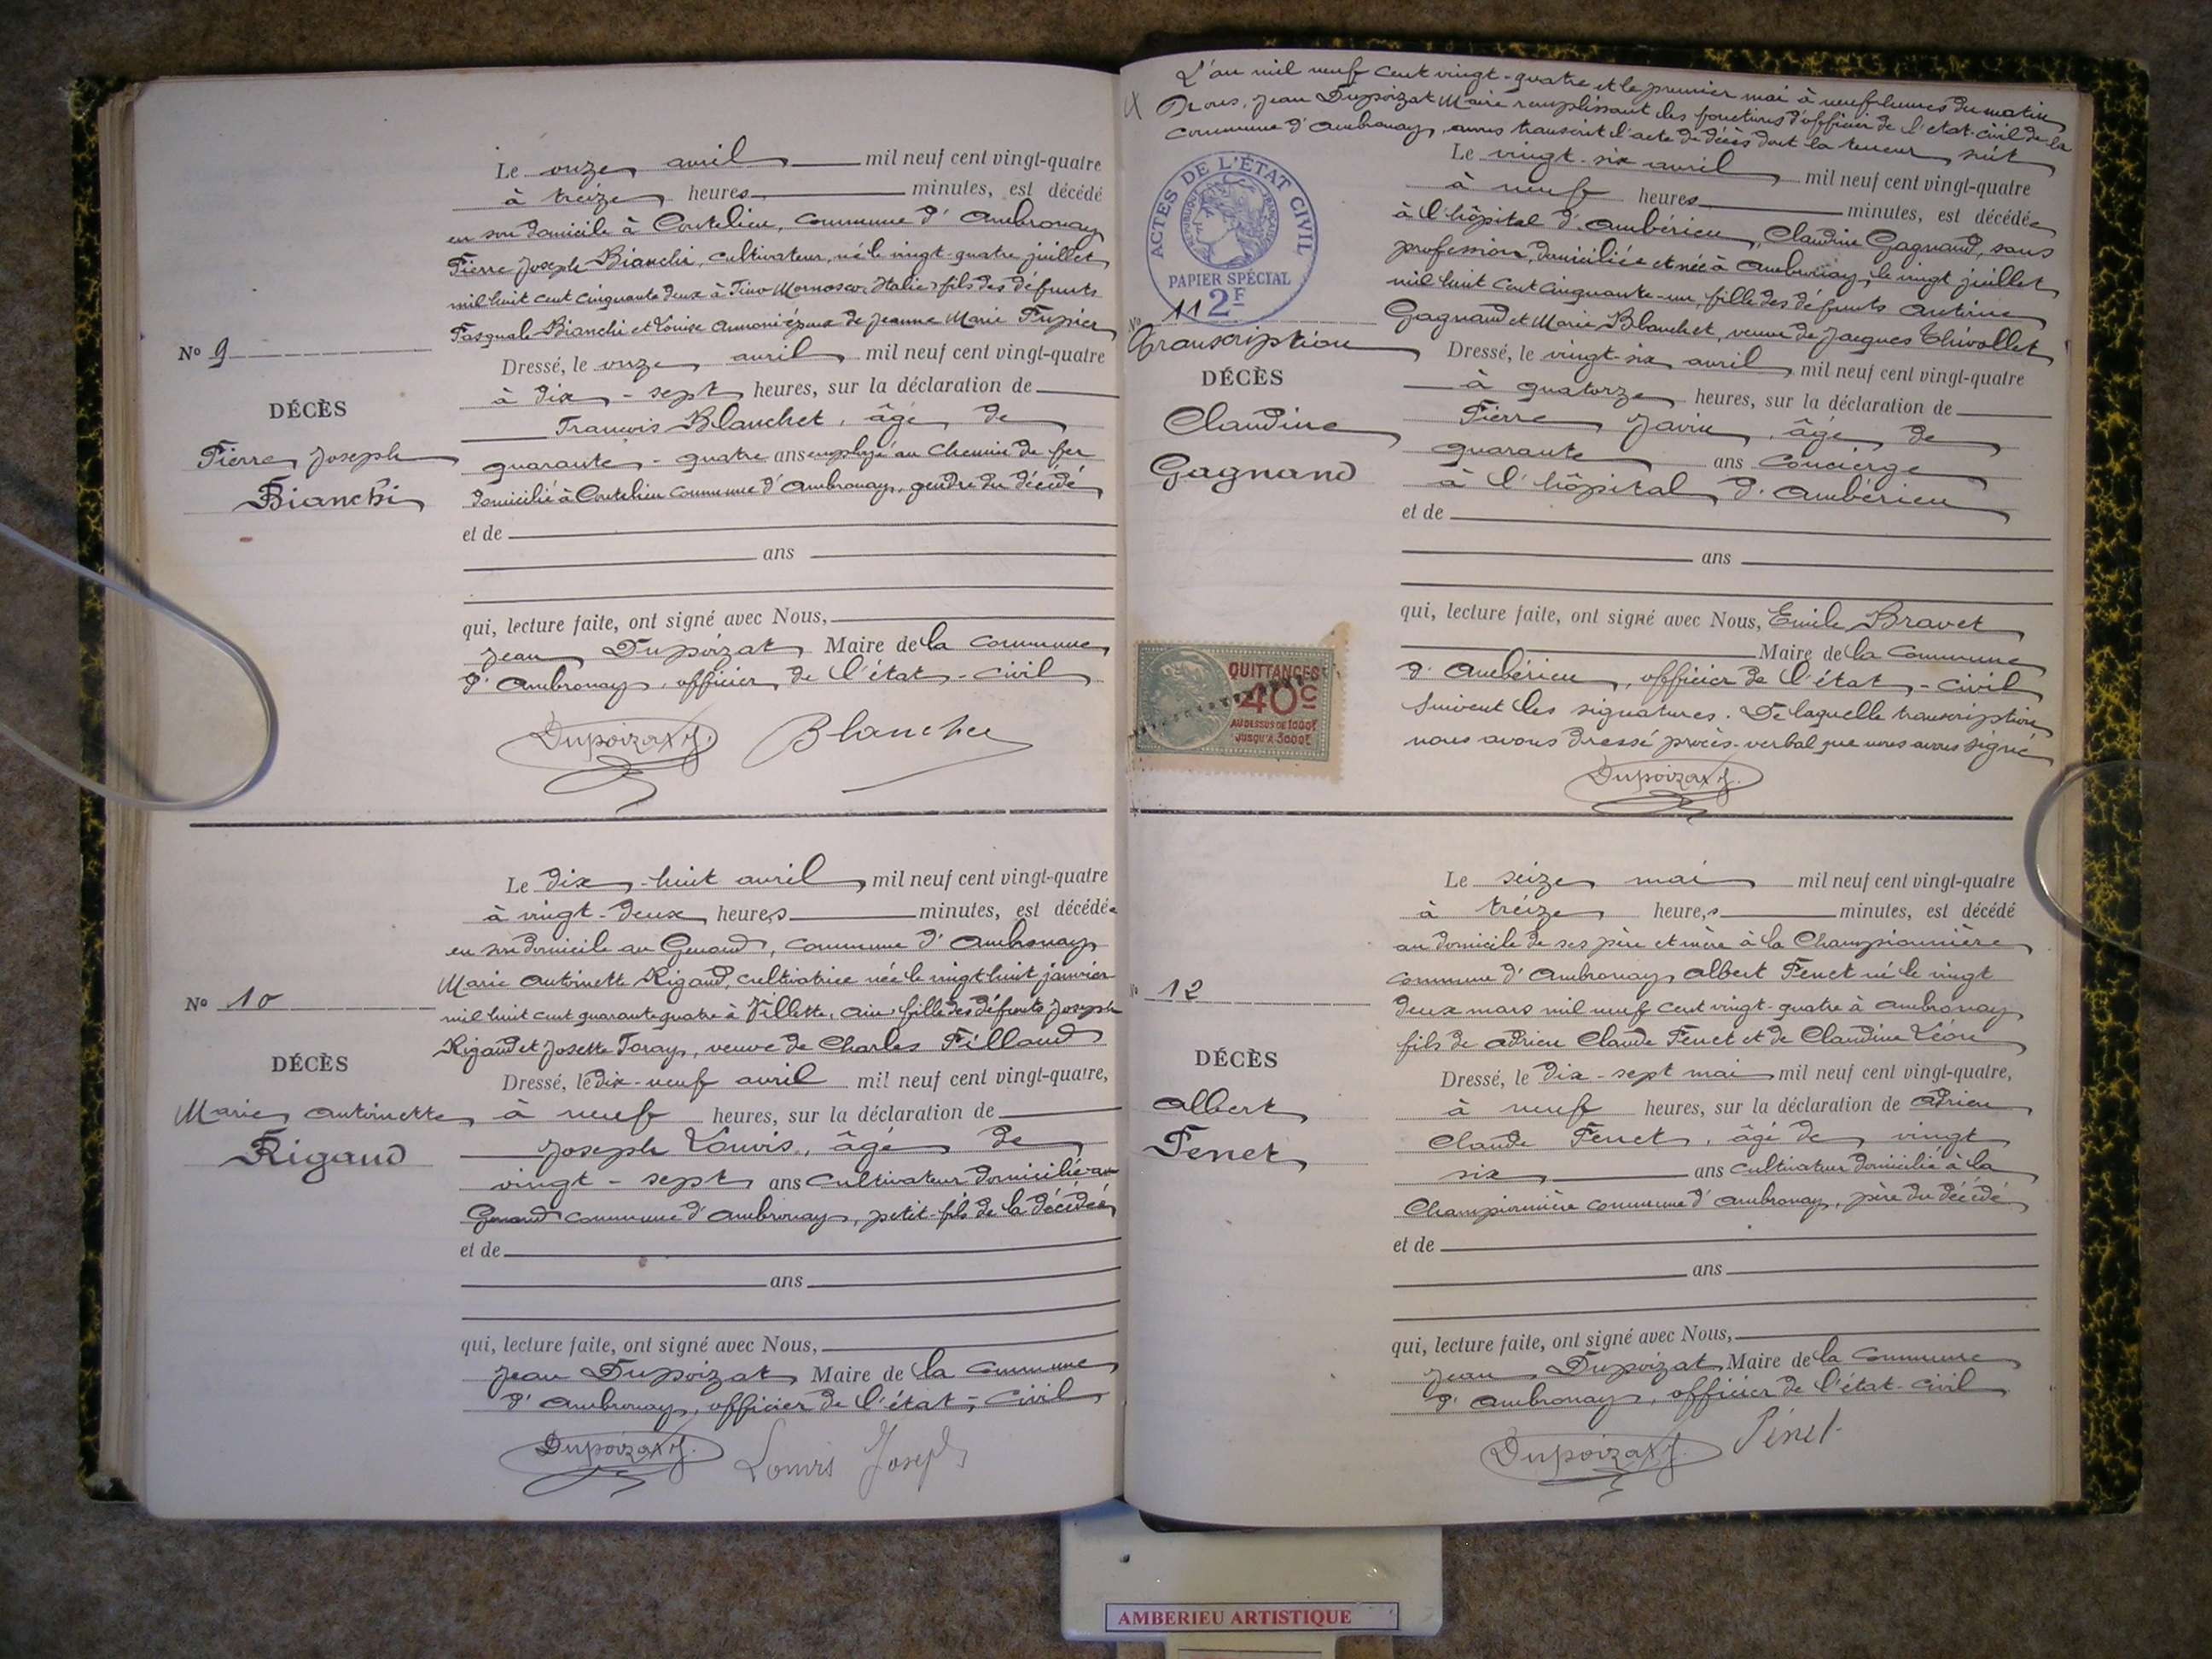 Le onze avril mil neuf cent vingt-quatre
à treize heures minutes, est décédé
en son domicile à Coutelieu, commune d'Ambronay
Pierre Joseph Bianchi, cultivateur, né le vingt-quatre juillet
mil huit cent cinquante deux à Tino Mornasco, Italie, fils des défunts
Pasquale Bianchi et Louise époux de Jeanne Marie Fupier
Nº 9
Dressé, le onze avril mil neuf cent vingt-quatre
à dix-sept heures, sur la déclaration de
DÉCÈS
François Blanchet, âgé de
Pierre Joseph
quarante-quatre ans employé au Chemin de fer
Bianchi
domicilié à Coutelieu commune d'Ambronay, gendre du décédé
et de
ans
qui, lecture faite, ont signé avec Nous,
Jean Dupoizat Maire de la Commune
d'Ambronay, officier de l'état-civil
Dupoizat J. Blanchet
Le dix-huit avril mil neuf cent vingt-quatre
à vingt-deux heures minutes, est décédée
en son domicile au Genoud, commune d'Ambronay
Marie Antoinette Rigaud, cultivatrice née le vingt huit janvier
Nº 10
mil huit cent quarante quatre à Villette, Ain, fille des défunts Joseph
Rigaud et Josette Toray, veuve de Charles Pilland
DÉCÈS
Dressé, le dix-neuf avril mil neuf cent vingt-quatre,
Marie Antoinette
à neuf heures, sur la déclaration de
Rigaud
Joseph Louvis, âgé de
vingt-sept ans cultivateur domicilié au
Genoud commune d'Ambronay, petit-fils de la décédée
et de
ans
qui, lecture faite, ont signé avec Nous,
Jean Dupoizat Maire de la Commune
d'Ambronay, officier de l'état-civil
Dupoizat J. Louvis Joseph
L'an mil neuf cent vingt-quatre et le premier mai à neuf heures du matin
Nous, Jean Dupoizat Maire remplissant les fonctions d'officier de l'état-civil de la
commune d'Ambronay, avons transcrit l'acte de décès dont la teneur suit
Le vingt-six avril mil neuf cent vingt-quatre
à neuf heures minutes, est décédée
à l'hôpital d'Ambérieu, Claudine Gagnand, sans
profession, domiciliée et née à Ambronay, le vingt juillet
mil huit cent cinquante-un, fille des défunts Antoine
Gagnand et Marie Blanchet, veuve de Jacques Thivollet
ACTES DE L'ÉTAT CIVIL
RÉPUBLIQUE FRANÇAISE
PAPIER SPÉCIAL
2F
Nº 11
Transcription
Dressé, le vingt-six avril mil neuf cent vingt-quatre
DÉCÈS
à quatorze heures, sur la déclaration de
Claudine
Pierre Javin, âgé de
Gagnand
quarante ans concierge
à l'hôpital d'Ambérieu
et de
ans
qui, lecture faite, ont signé avec Nous, Emile Bravet
Maire de la Commune
d'Ambérieu, officier de l'état-civil
Suivent les signatures. De laquelle transcription
nous avons dressé procès-verbal que nous avons signé
Dupoizat J.
QUITTANCES
40c
AU DESSUS DE 1000f
JUSQU'À 3000f
Le seize mai mil neuf cent vingt-quatre
à treize heures minutes, est décédé
au domicile de ses père et mère à la Championnière
commune d'Ambronay Albert Penet né le vingt
Nº 12
deux mars mil neuf cent vingt-quatre à Ambronay
fils de Adrien Claude Penet et de Claudine Léon
DÉCÈS
Dressé, le dix-sept mai mil neuf cent vingt-quatre,
Albert
à neuf heures, sur la déclaration de Adrien
Penet
Claude Penet, âgé de vingt
six ans cultivateur domicilié à la
Championnière commune d'Ambronay, père du décédé
et de
ans
qui, lecture faite, ont signé avec Nous,
Jean Dupoizat Maire de la Commune
d'Ambronay, officier de l'état-civil
Dupoizat J. Pénet
AMBERIEU ARTISTIQUE